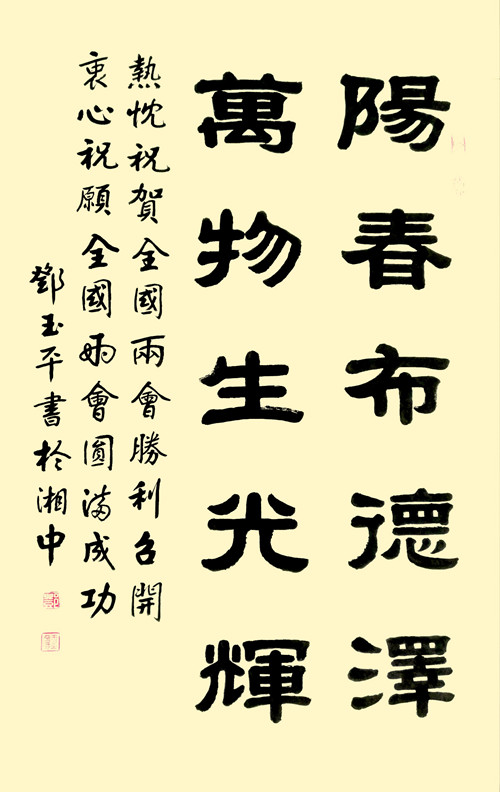 陽春布德澤
萬物生光輝
熱忱祝賀全國兩會勝利召開
衷心祝願全國兩會圓滿成功
鄧玉平書於湘中